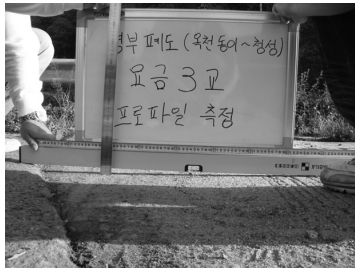 경부 폐도 (옥천 동이~청성)
요금 3교
프로파일 측정